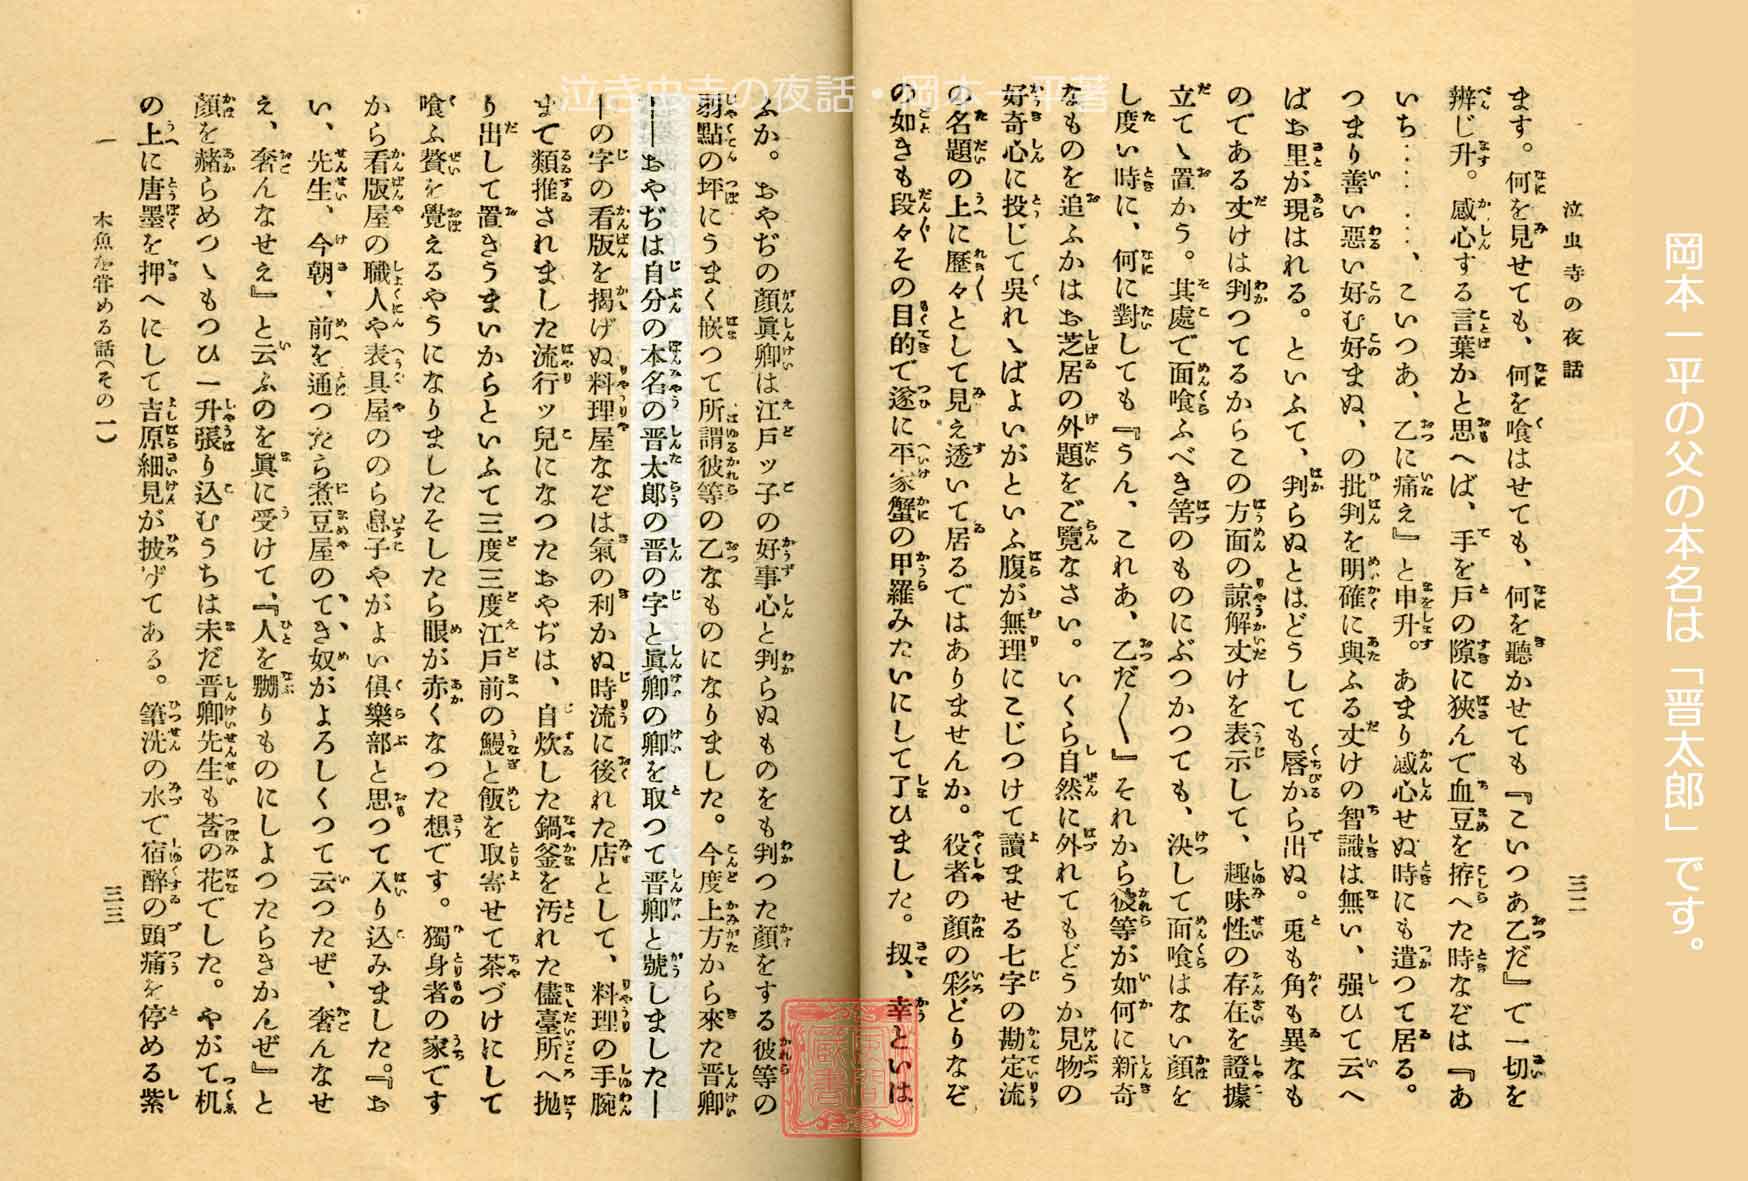 岡本一平の父の本名は「晋太郎」です。
泣き虫寺の夜話・岡本一平著
泣虫寺の夜話
三二
ます。何を見せても、何を喰はせても、何を聽かせても『こいつあ乙だ』で一切を
辨じ升。感心する言葉かと思へば、手を戸の隙に狹んで血豆を拵へた時なぞは『あ
いち‥‥‥、こいつあ、乙に痛え』と申升。あまり感心せぬ時にも遣つて居る。
つまり善い惡い好む好まぬ、の批判を明確に與ふる丈けの智識は無い、强ひて云へ
ばお里が現はれる。といふて、判らぬとはどうしても唇から出ぬ。兎も角も異なも
のである丈けは判つてるからこの方面の諒解丈けを表示して、趣味性の存在を證據
立てゝ置かう。其處で面喰ふべき筈のものにぶつかつても、決して面喰はない顏を
し度い時に、何に對しても『うん、これあ、乙だ〱』それから彼等が如何に新奇
なものを追ふかはお芝居の外題をご覽なさい。いくら自然に外れてもどうか見物の
好奇心に投じて吳れゝばよいがといふ腹が無理にこじつけて讀ませる七字の勘定流
の名題の上に歷々として見え透いて居るではありませんか。役者の顏の彩どりなぞ
の如きも段々その目的で遂に平家蟹の甲羅みたいにして了ひました。扨、幸といは
ふか。おやぢの顏眞卿は江戸ッ子の好事心と判らぬものをも判つた顏をする彼等の
弱點の坪にうまく嵌つて所謂彼等の乙なものになりました。今度上方から來た晋卿
――おやぢは自分の本名の晋太郎の晋の字と眞卿の卿を取つて晋卿と號しました―
―の字の看版を揭げぬ料理屋なぞは氣の利かぬ時流に後れた店として、料理の手腕
まで類推されました流行ッ兒になつたおやぢは、自炊した鍋釜を汚れた儘臺所へ抛
り出して置きうまいからといふて三度三度江戸前の鰻と飯を取寄せて茶づけにして
喰ふ贅を覺えるやうになりましたそしたら眼が赤くなつた想です。獨身者の家です
から看版屋の職人や表具屋ののら息子やがよい俱樂部と思つて入り込みました。『お
い、先生、今朝、前を通つたら煮豆屋のてき奴がよろしくつて云つたぜ、奢んなせ
え、奢んなせえ』と云ふのを眞に受けて、『人を嬲りものにしよつたらきかんぜ』と
顏を赭らめつゝもつひ一升張り込むうちは未だ晋卿先生も莟の花でした。やがて机
の上に唐墨を押へにして吉原細見が披げてある。筆洗の水で宿醉の頭痛を停める紫
一 木魚を嘗める話(その一)
三三